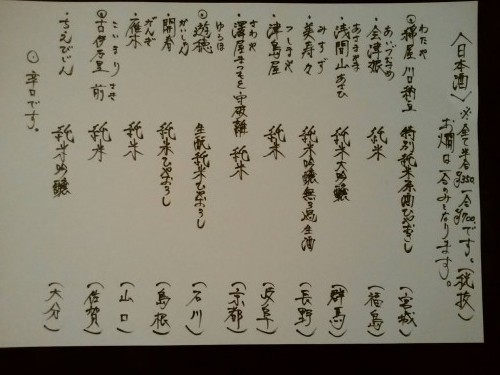 〈日本酒〉※全て半合¥350 一合¥700です。(税抜)
お燗は一合のみとなります。
わたや
◎綿屋 川口納豆 特別純米原酒ひやおろし (宮城)
あいづむすめ
・会津娘 純米 (福島)
あさまやま
・浅間山 あさひ 純米大吟醸 (群馬)
みすず
・美寿々 純米吟醸無ろ過生酒 (長野)
つしまや
・津島屋 純米 (岐阜)
さわや
・澤屋まつもと守破離 純米 (京都)
ゆうほ
◎遊穂 生酛純米ひやおろし (石川)
かいしゅん
・開春 純米ひやおろし (島根)
がんぎ
・雁木 純米 (山口)
こいまり さき
◎古伊万里 前 純米 (佐賀)
・ちえびじん 純米吟醸 (大分)
◎辛口です。